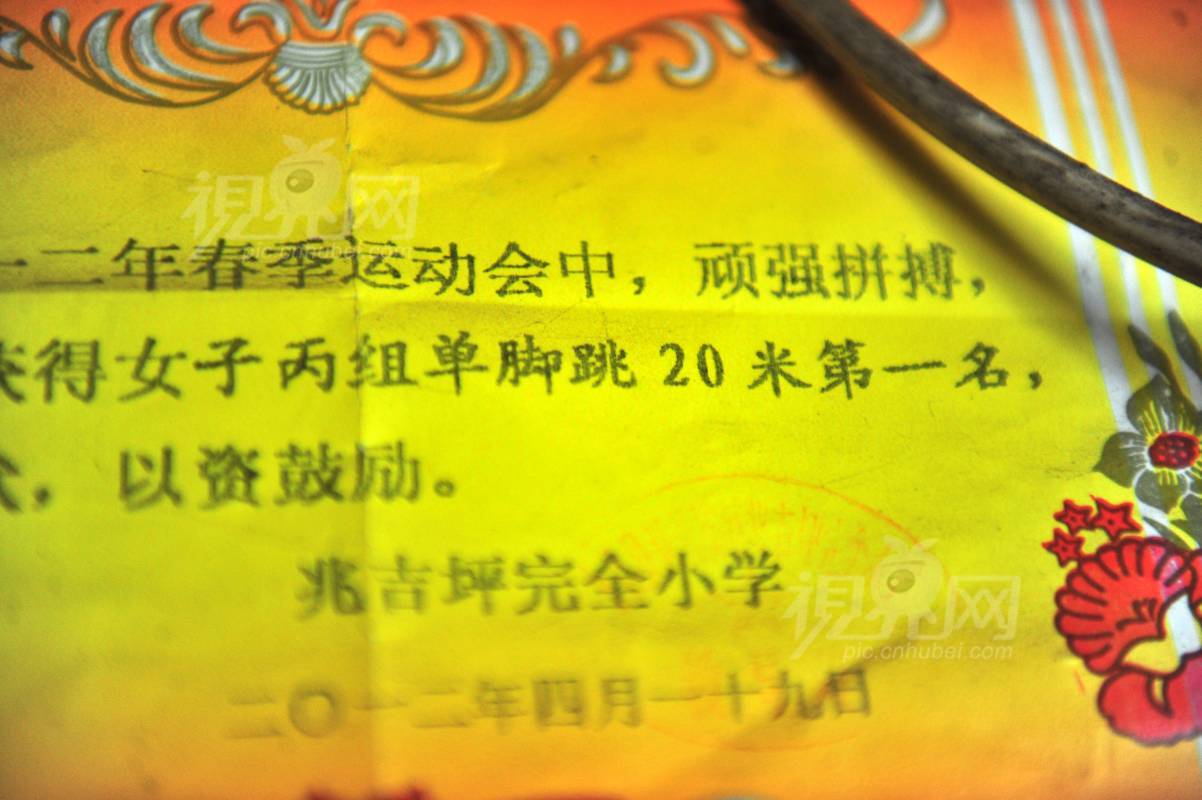 視界网
pic.cnhubei.com
一二年春季运动会中，顽强拼搏，
获得女子丙组单脚跳20米第一名，
，以资鼓励。
兆吉坪完全小学
視界网
pic.cnhubei.com
二〇一二年四月一十九日